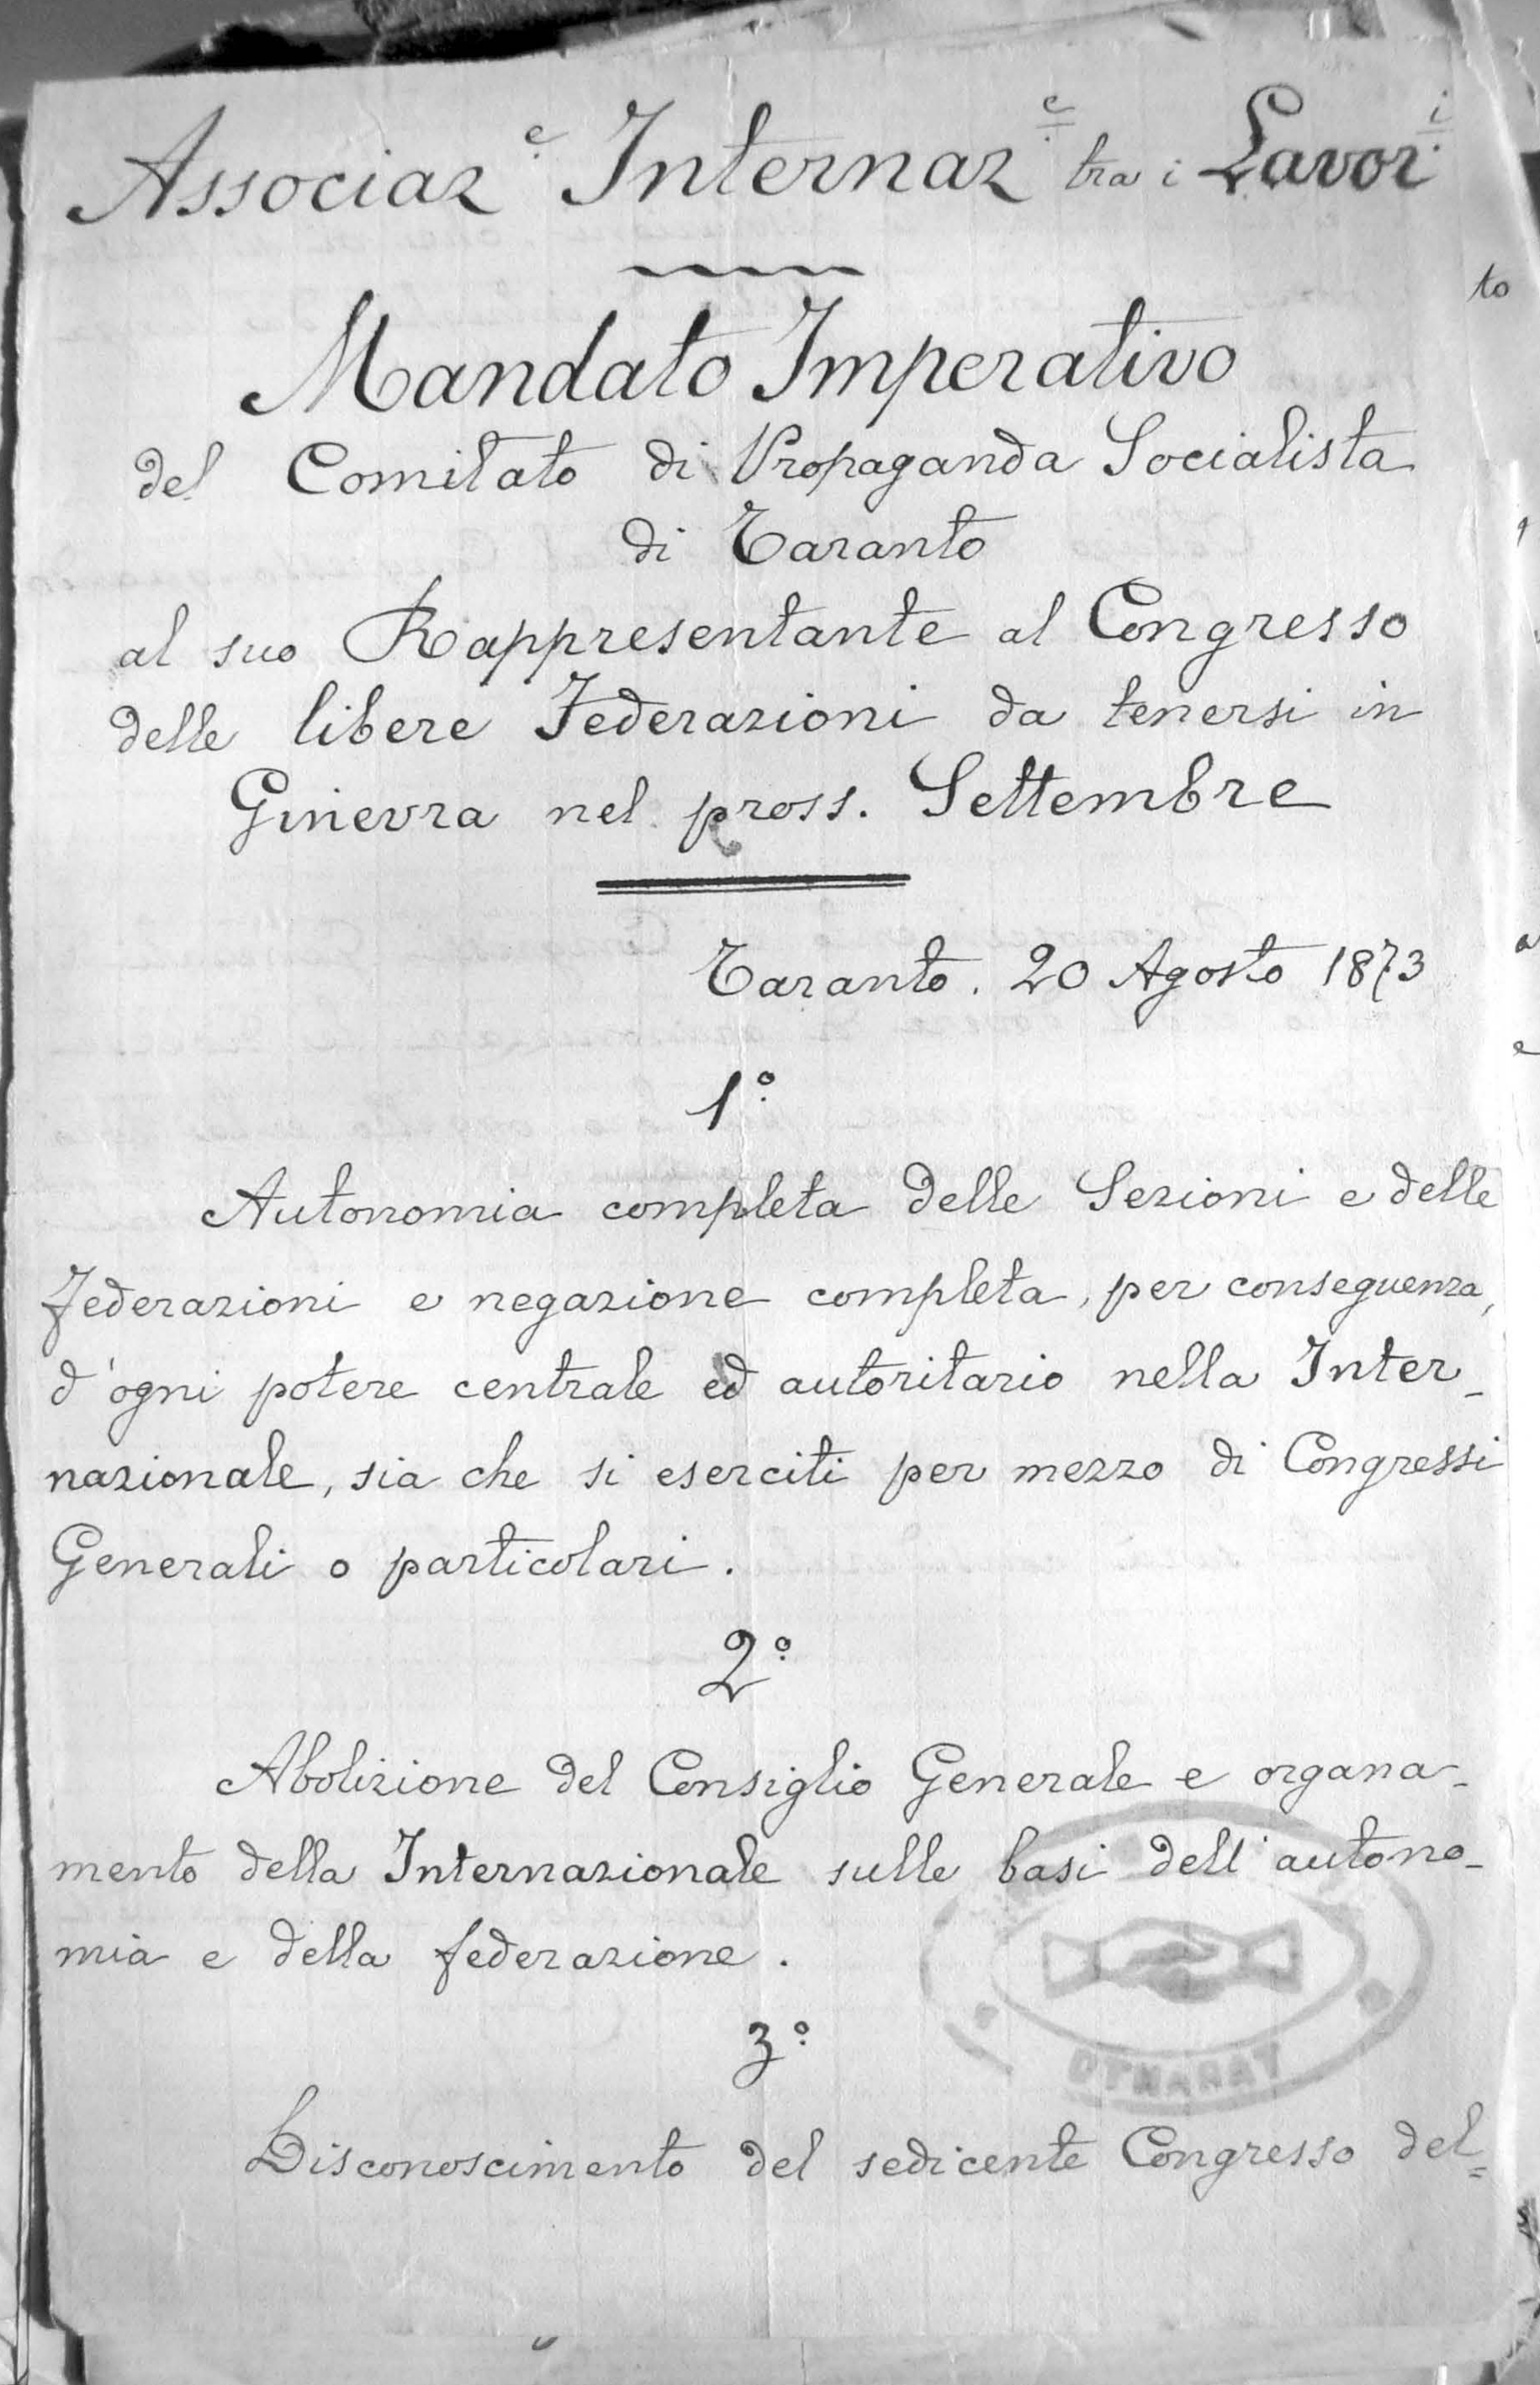 Associaz.e Internaz.e tra i Lavor.i
Mandato Imperativo
del Comitato di Propaganda Socialista
di Taranto
al suo Rappresentante al Congresso
delle libere Federazioni da tenersi in
Ginevra nel pross. Settembre
Taranto. 20 Agosto 1873
1.º
Autonomia completa delle Sezioni e delle
federazioni e negazione completa, per conseguenza,
d'ogni potere centrale ed autoritario nella Inter-
nazionale, sia che si eserciti per mezzo di Congressi
Generali o particolari.
2.º
Abolizione del Consiglio Generale e organa-
mento della Internazionale sulle basi dell'autono-
mia e della federazione.
3.º
Disconoscimento del sedicente Congresso del=
to